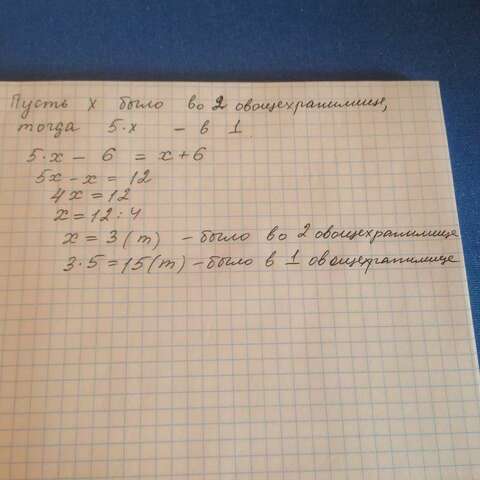 Пусть x было во 2 овощехранилище,
тогда 5·x – в 1
5·x – 6 = x + 6
5x – x = 12
4x = 12
x = 12 : 4
x = 3 (т) – было во 2 овощехранилище
3·5 = 15 (т) – было в 1 овощехранилище